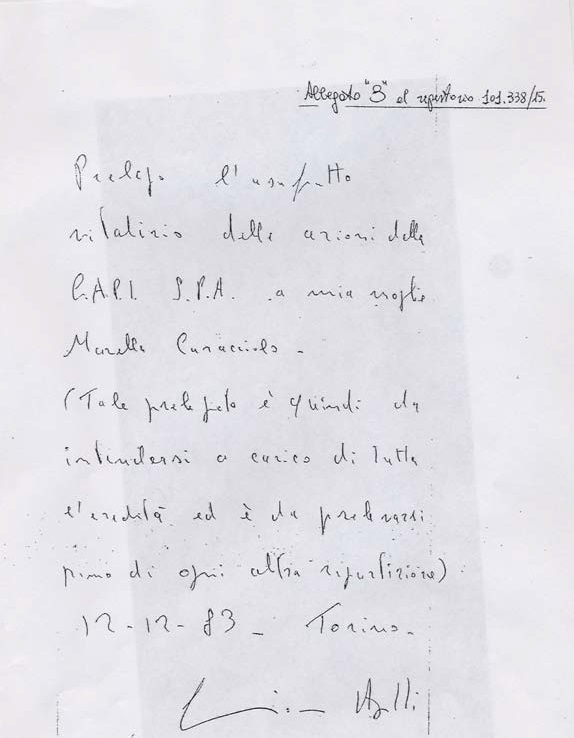 Allegato "3" al repertorio 101.338/15.
Prelego l'usufrutto
vitalizio delle azioni della
C.A.P.I. S.P.A. a mia moglie
Marella Caracciolo -
(Tale prelegato è quindi da
intendersi a carico di tutta
l'eredità ed è da prelevarsi
prima di ogni altra ripartizione)
12-12-83 - Torino -
Agnelli